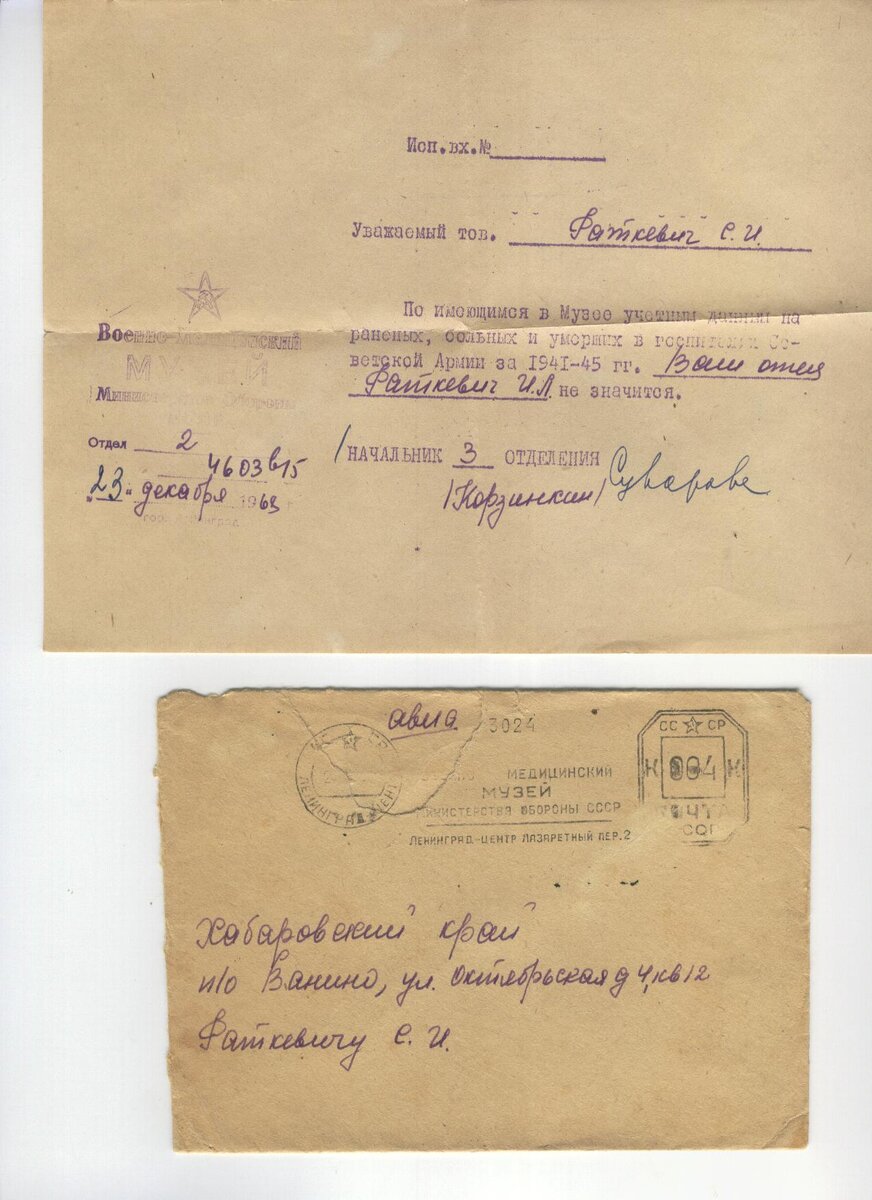 Исп.вх.№
Уважаемый тов. Раткевич С.И.
По имеющимся в Музее учетным данным на
раненых, больных и умерших в госпиталях Со-
ветской Армии за 1941-45 гг. Ваш отец
Раткевич И.Л. не значится.
Военно-Медицинский
МУЗЕЙ
Министерства Обороны
Отдел 2
4603в15
"23" декабря 1963 г
город Ленинград
/НАЧАЛЬНИК 3 ОТДЕЛЕНИЯ
/Корзинкин/
авиа
3024
СС СР
ЛЕНИНГРАД
МЕДИЦИНСКИЙ
МУЗЕЙ
МИНИСТЕРСТВА ОБОРОНЫ СССР
ЛЕНИНГРАД-ЦЕНТР ЛАЗАРЕТНЫЙ ПЕР.2
СС СР
К 004 К
ПОЧТА
СССР
Хабаровский край
п/о Ванино, ул. Октябрьская д 4, кв 12
Раткевичу С.И.